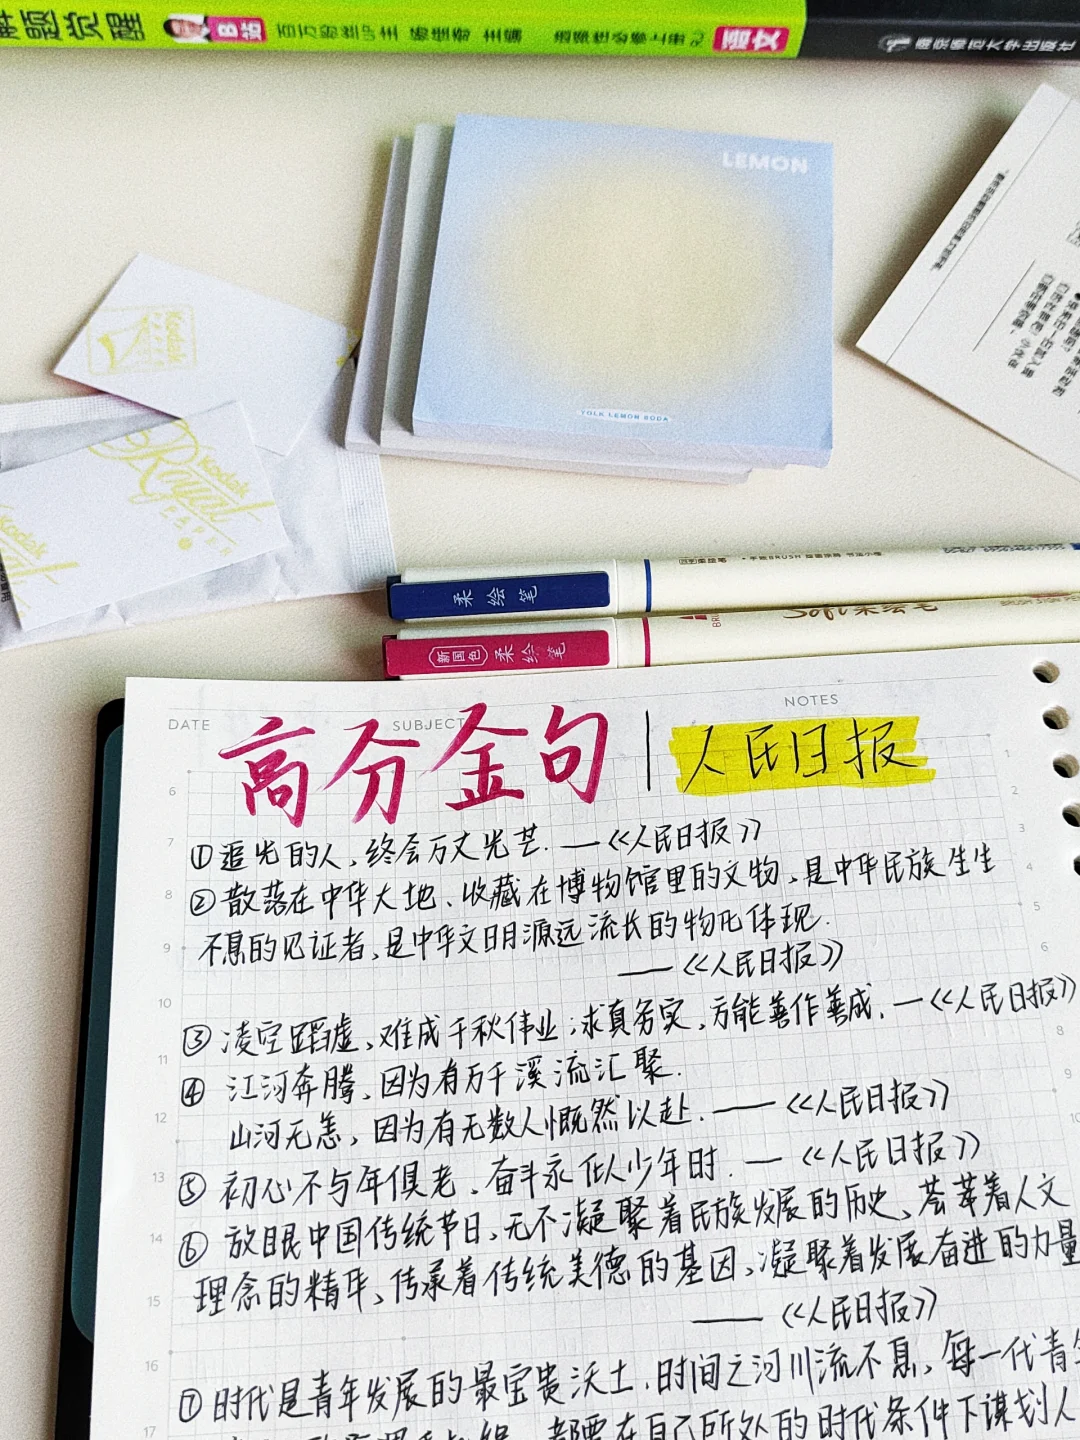 解题觉醒 B站 百万粉丝UP主 杨佳奇 主编 选择性必修上册RJ 语文 南京师范大学出版社
LEMON
YOLK LEMON SODA
Kodak
PAPER
Kodak
Royal
PAPER
Kodak
柔绘笔
新国色 柔绘笔
DATE
SUBJECT
NOTES
高分金句 | 人民日报
①追光的人、终会万丈光芒. —《人民日报》
②散落在中华大地、收藏在博物馆里的文物、是中华民族生生
不息的见证者、是中华文明源远流长的物化体现.
——《人民日报》
③ 凌空蹈虚、难成千秋伟业;求真务实、方能善作善成. —《人民日报》
④ 江河奔腾、因为有万千溪流汇聚.
山河无恙, 因为有无数人慨然以赴. ——《人民日报》
⑤ 初心不与年俱老、奋斗永似少年时. —《人民日报》
⑥ 放眼中国传统节日、无不凝聚着民族发展的历史、荟萃着人文
理念的精华、传承着传统美德的基因、凝聚着发展奋进的力量
——《人民日报》
⑦时代是青年发展的最宝贵沃土.时间之河川流不息、每一代青年
都要在自己所处的时代条件下谋划人